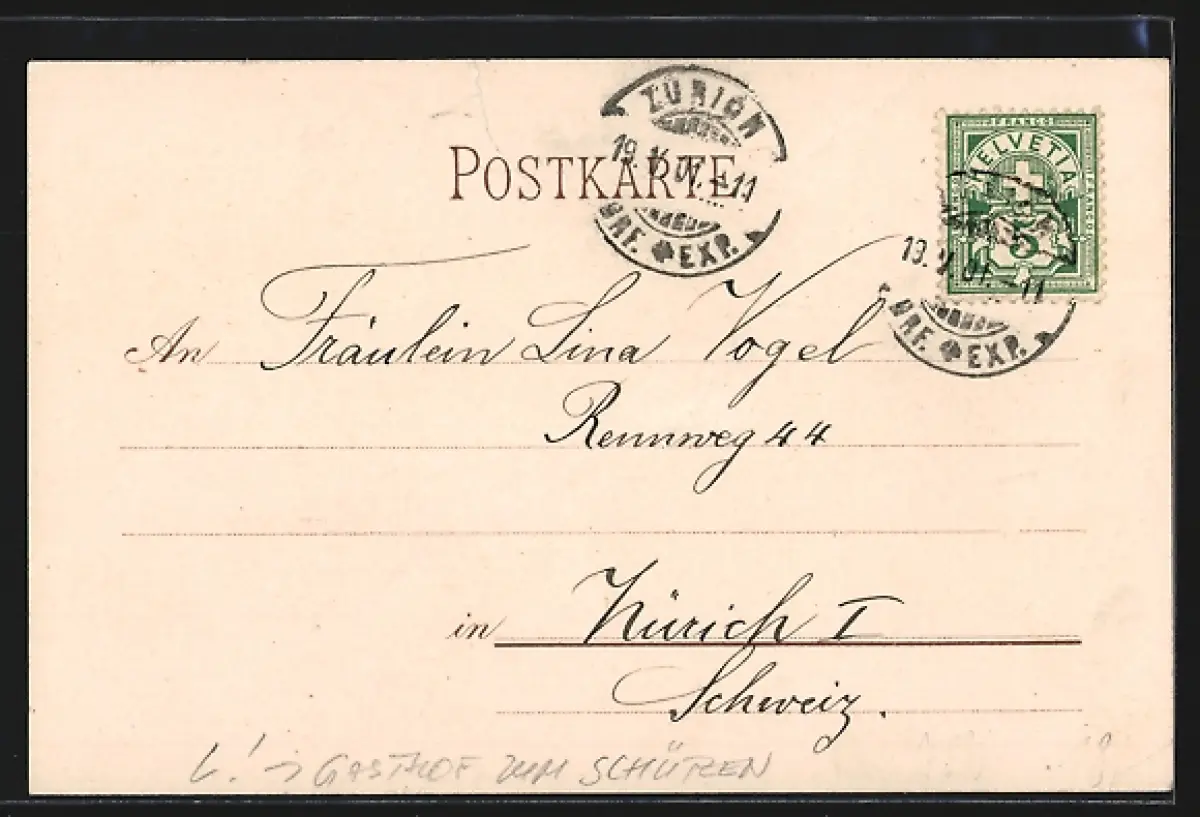 ZÜRICH
19.V.01.-11
BRF. EXP.
POSTKARTE
FRANCO
HELVETIA
5
19.V.01.-11
BRF. EXP.
An Fräulein Lina Vogel
Rennweg 44
in Zürich I
Schweiz.
L! → GASTHOF ZUM SCHÜTZEN